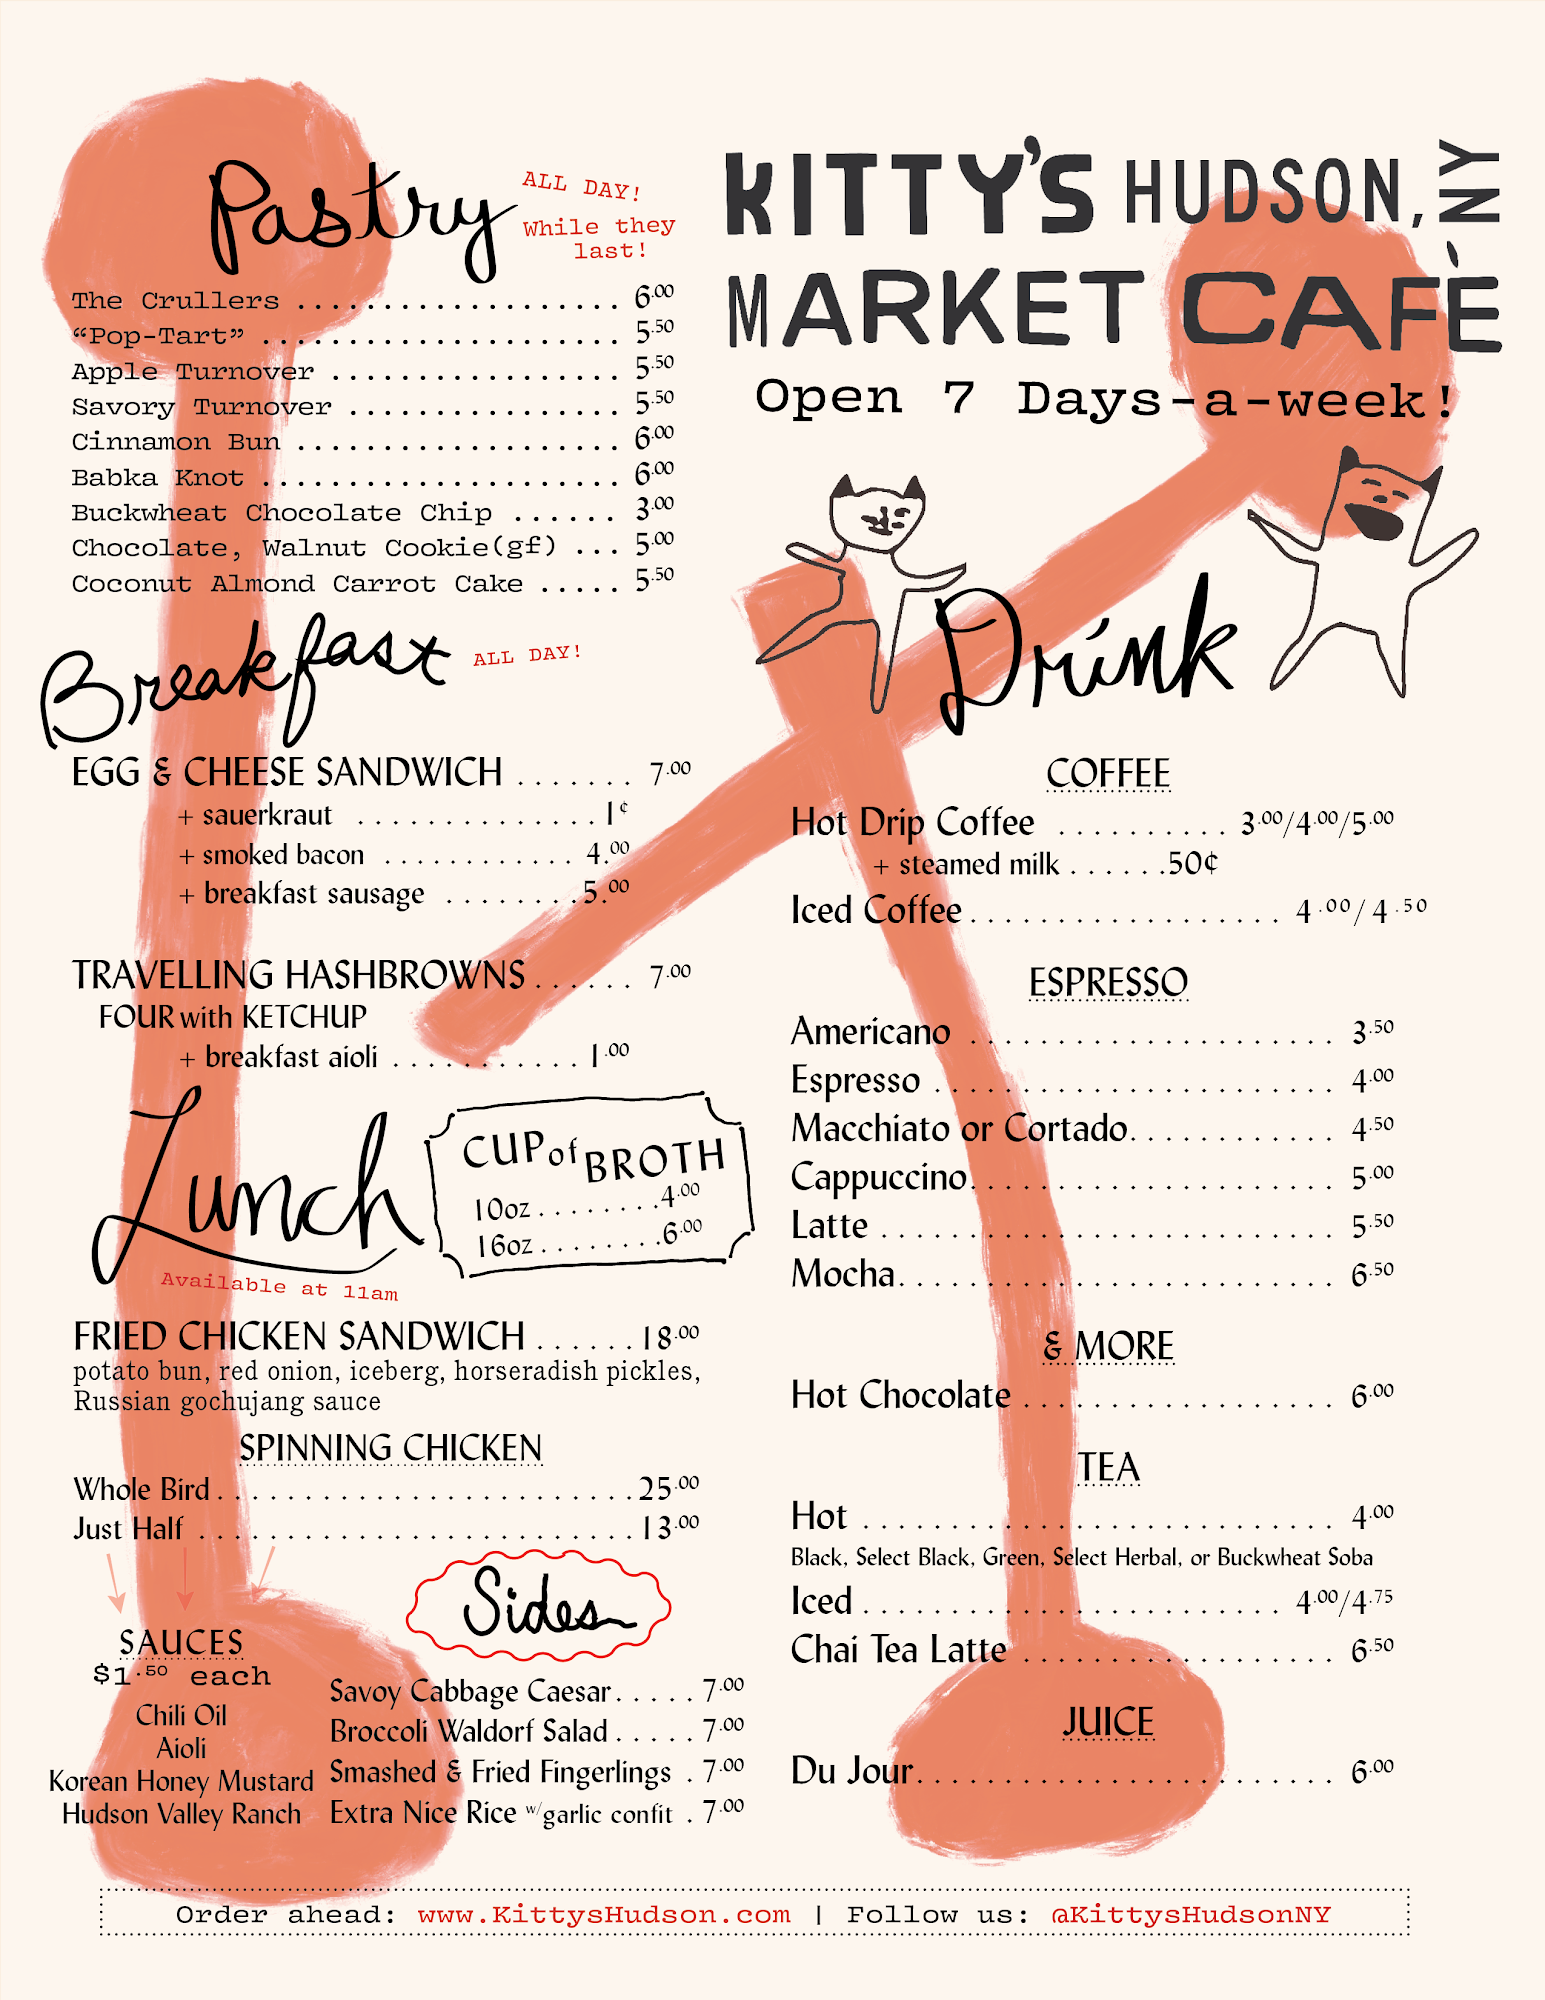 KITTY'S HUDSON, NY
MARKET CAFÉ
Open 7 Days-a-week!
Pastry
ALL DAY!
While they
last!
The Crullers .................... 6.00
“Pop-Tart” ..................... 5.50
Apple Turnover ................. 5.50
Savory Turnover ................ 5.50
Cinnamon Bun ................... 6.00
Babka Knot ..................... 6.00
Buckwheat Chocolate Chip ...... 3.00
Chocolate, Walnut Cookie(gf) ... 5.00
Coconut Almond Carrot Cake ..... 5.50
Breakfast
ALL DAY!
EGG & CHEESE SANDWICH ....... 7.00
+ sauerkraut .............. 1¢
+ smoked bacon ............ 4.00
+ breakfast sausage ........ 5.00
TRAVELLING HASHBROWNS ...... 7.00
FOUR with KETCHUP
+ breakfast aioli ........... 1.00
Lunch
Available at 11am
CUP of BROTH
10oz ........ 4.00
16oz ........ 6.00
FRIED CHICKEN SANDWICH ...... 18.00
potato bun, red onion, iceberg, horseradish pickles,
Russian gochujang sauce
SPINNING CHICKEN
Whole Bird ........................ 25.00
Just Half ......................... 13.00
SAUCES
$1.50 each
Chili Oil
Aioli
Korean Honey Mustard
Hudson Valley Ranch
Sides
Savoy Cabbage Caesar ..... 7.00
Broccoli Waldorf Salad ..... 7.00
Smashed & Fried Fingerlings . 7.00
Extra Nice Rice w/garlic confit . 7.00
Drink
COFFEE
Hot Drip Coffee .......... 3.00/4.00/5.00
+ steamed milk ...... .50¢
Iced Coffee .................. 4.00/4.50
ESPRESSO
Americano ..................... 3.50
Espresso ....................... 4.00
Macchiato or Cortado ............ 4.50
Cappuccino ..................... 5.00
Latte .......................... 5.50
Mocha ......................... 6.50
& MORE
Hot Chocolate .................. 6.00
TEA
Hot ........................... 4.00
Black, Select Black, Green, Select Herbal, or Buckwheat Soba
Iced ........................ 4.00/4.75
Chai Tea Latte .................. 6.50
JUICE
Du Jour ........................ 6.00
Order ahead: www.KittysHudson.com | Follow us: @KittysHudsonNY